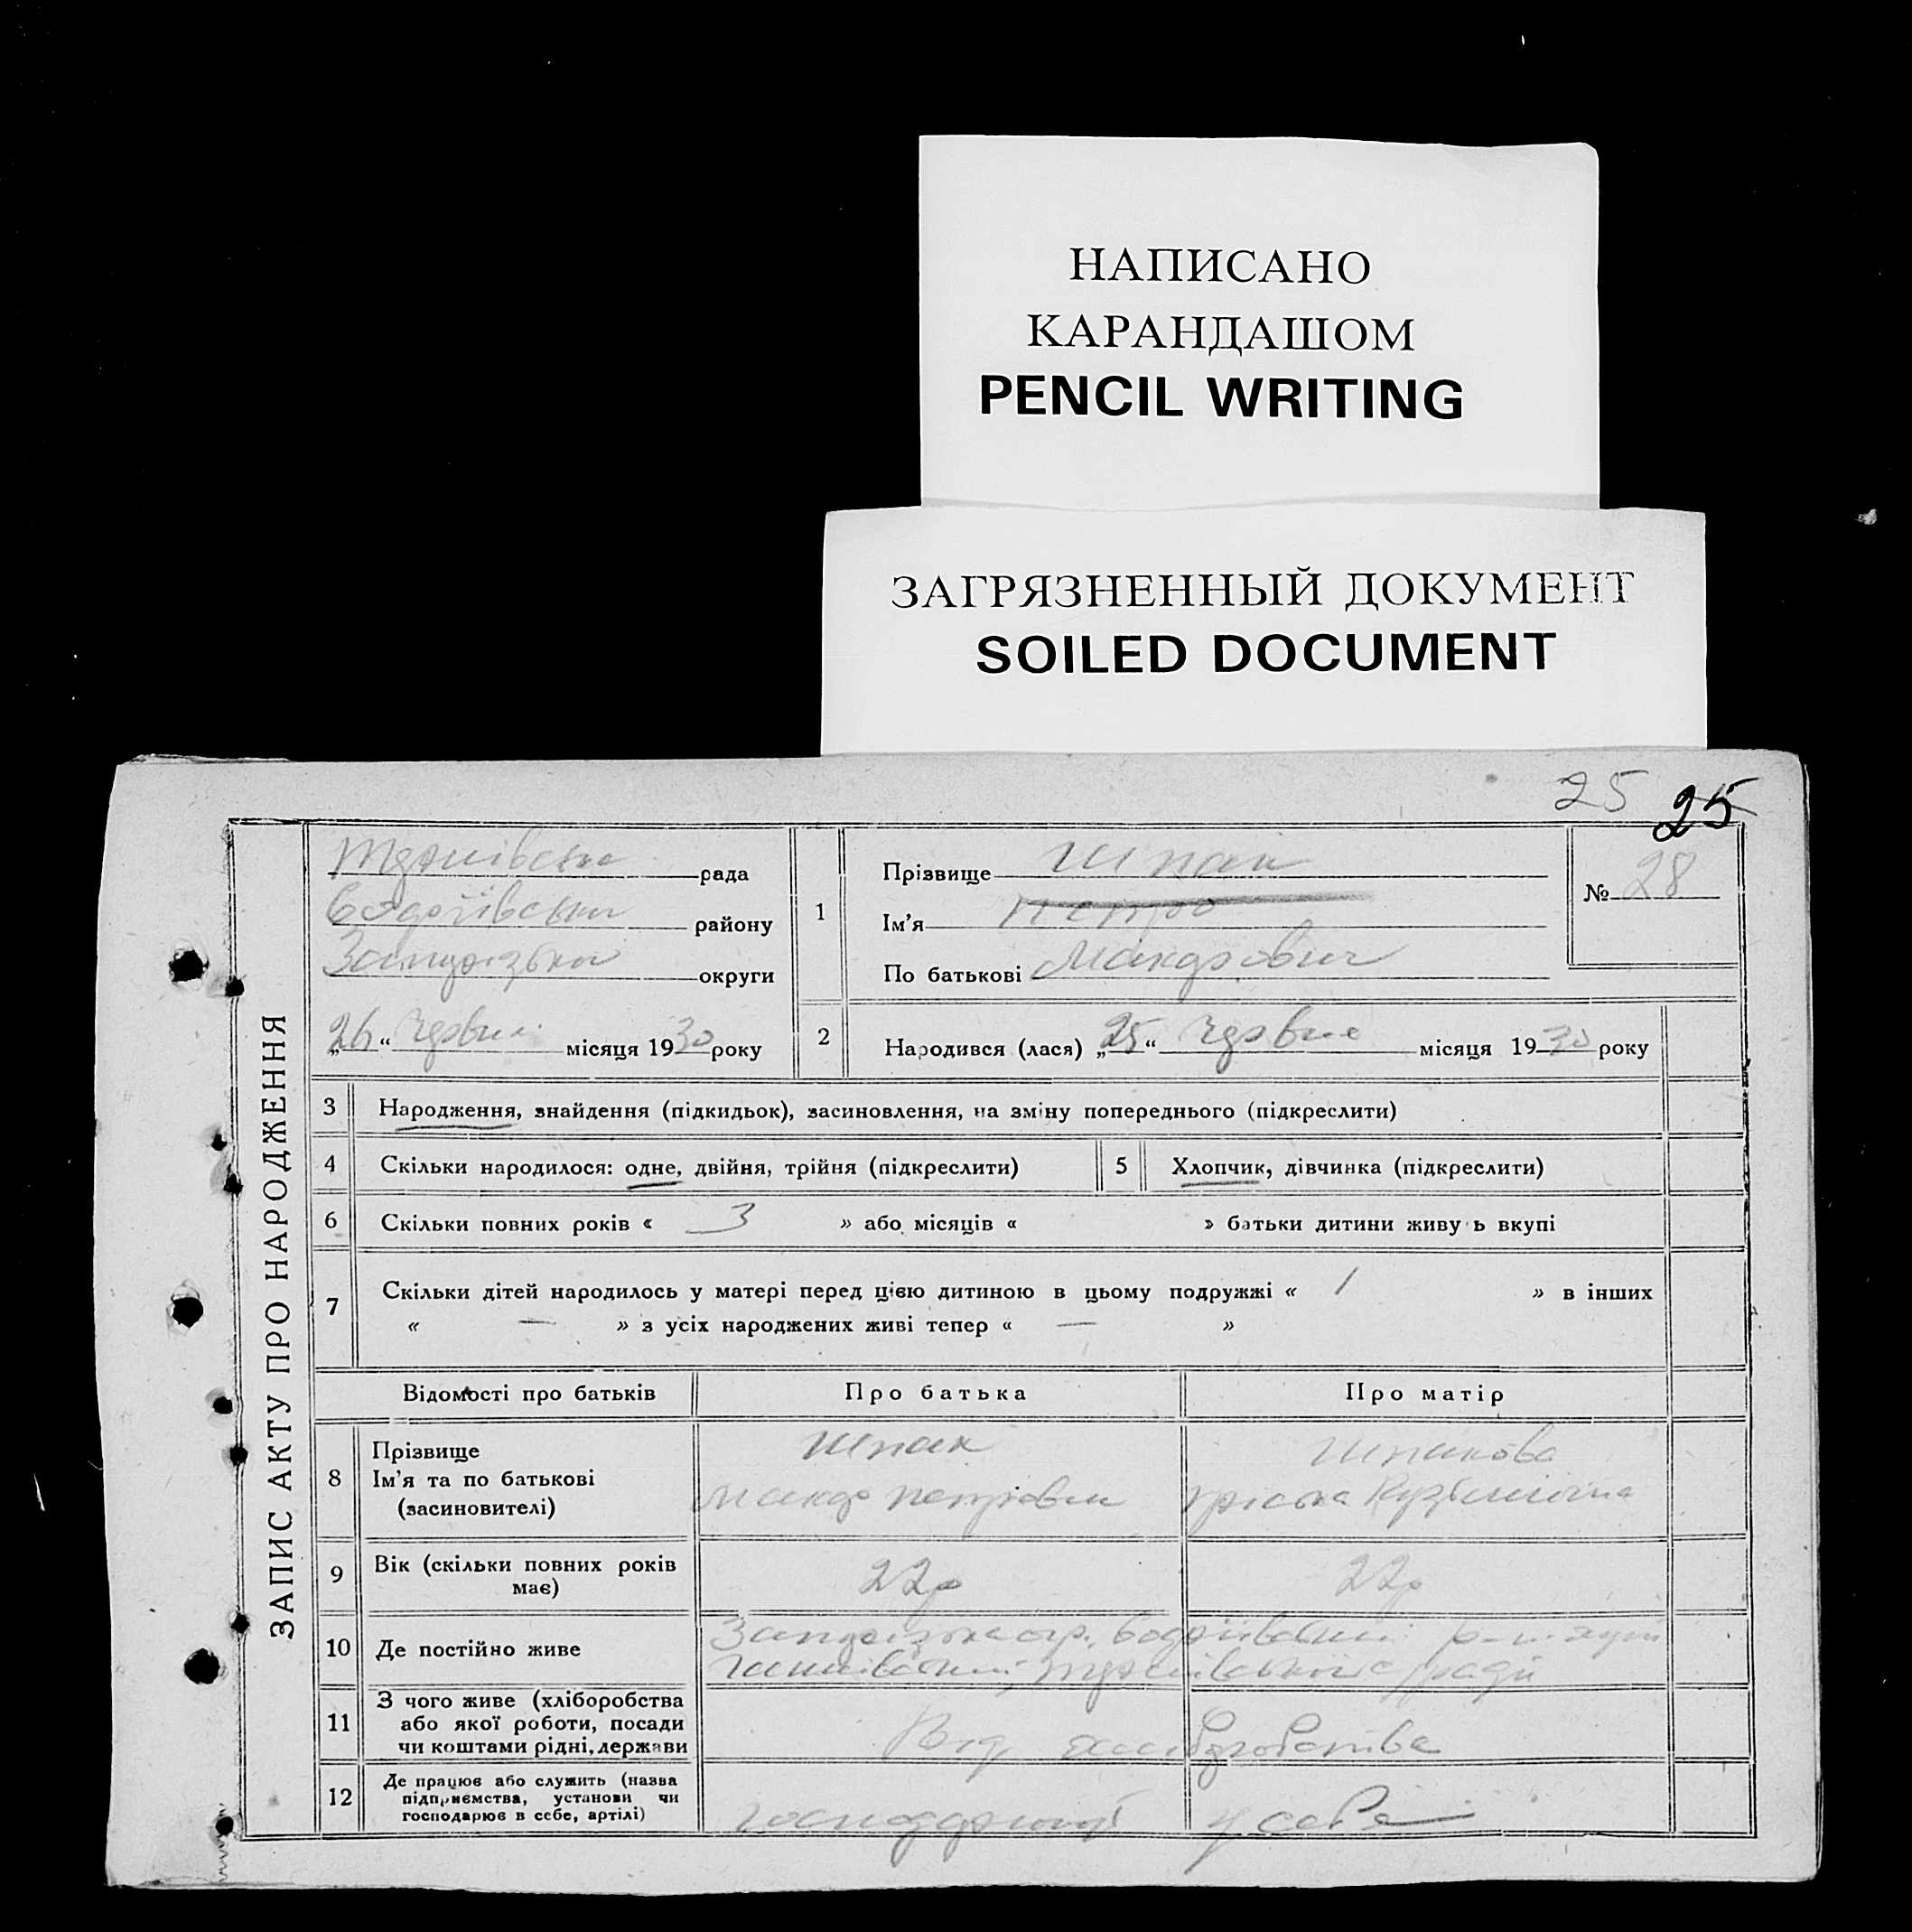 НАПИСАНО
КАРАНДАШОМ
PENCIL WRITING
ЗАГРЯЗНЕННЫЙ ДОКУМЕНТ
SOILED DOCUMENT
25 25
ЗАПИС АКТУ ПРО НАРОДЖЕННЯ
рада
району
округи
„26“ місяця 1930 року
1
Прізвище Шпак
Ім'я Петро
По батькові Макарович
№ 28
2
Народився (лася) „25“ місяця 1930 року
3 Народження, знайдення (підкидьок), засиновлення, на зміну попереднього (підкреслити)
4 Скільки народилося: одне, двійня, трійня (підкреслити) 5 Хлопчик, дівчинка (підкреслити)
6 Скільки повних років « 3 » або місяців « » батьки дитини живуть вкупі
7 Скільки дітей народилось у матері перед цією дитиною в цьому подружжі « 1 » в інших
« — » з усіх народжених живі тепер « — »
Відомості про батьків Про батька Про матір
8 Прізвище
Ім'я та по батькові
(засиновителі)
Шпак
Макар Петрович
Шпакова
9 Вік (скільки повних років
має)
22р 22р
10 Де постійно живе
11 З чого живе (хліборобства
або якої роботи, посади
чи коштами рідні, держави
Від хліборобства
12 Де працює або служить (назва
підприємства, установи чи
господарює в себе, артілі)
у себе